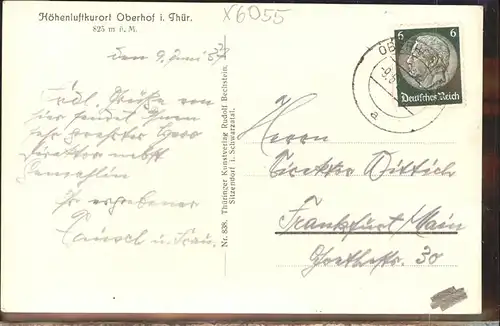 Höhenluftkurort Oberhof i. Thür.
825 m ü. M.
X6055
den 9. Juni 37
Frdl. Grüße von
hier sendet Ihnen
sehr geehrter Herr
Direktor nebst
Gemahlin
Ihr ergebener
u. Frau.
Nr. 838. Thüringer Kunstverlag Rudolf Bechstein,
Sitzendorf i. Schwarzatal.
6 6
Deutsches Reich
a
Herrn
Direktor Dittrich
Frankfurt/Main
Goethestr. 30